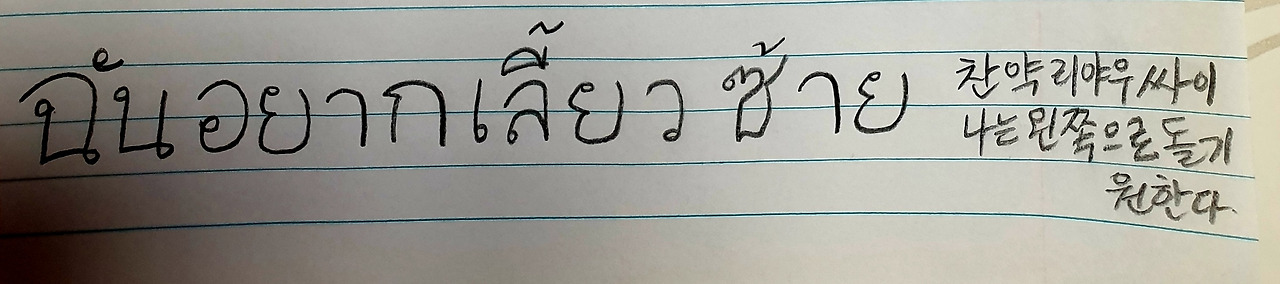 ฉันอยากเลี้ยวซ้าย
찬 약 리야우 싸이
나는 왼쪽으로 돌기
원한다.